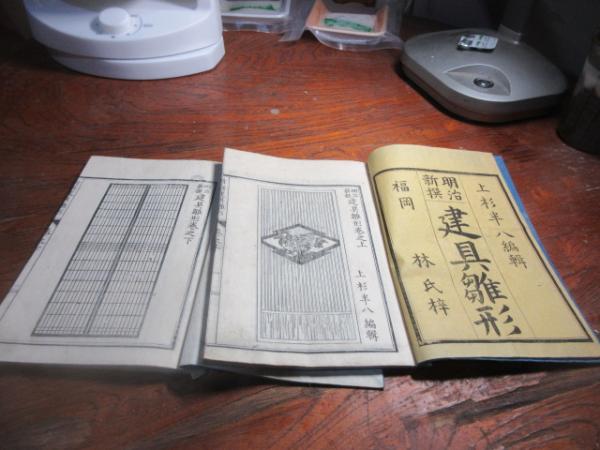 上杉半八編輯
明治
新撰
建具雛形
福岡 林氏梓
建具雛形巻之上
上杉半八編輯
建具雛形巻之下